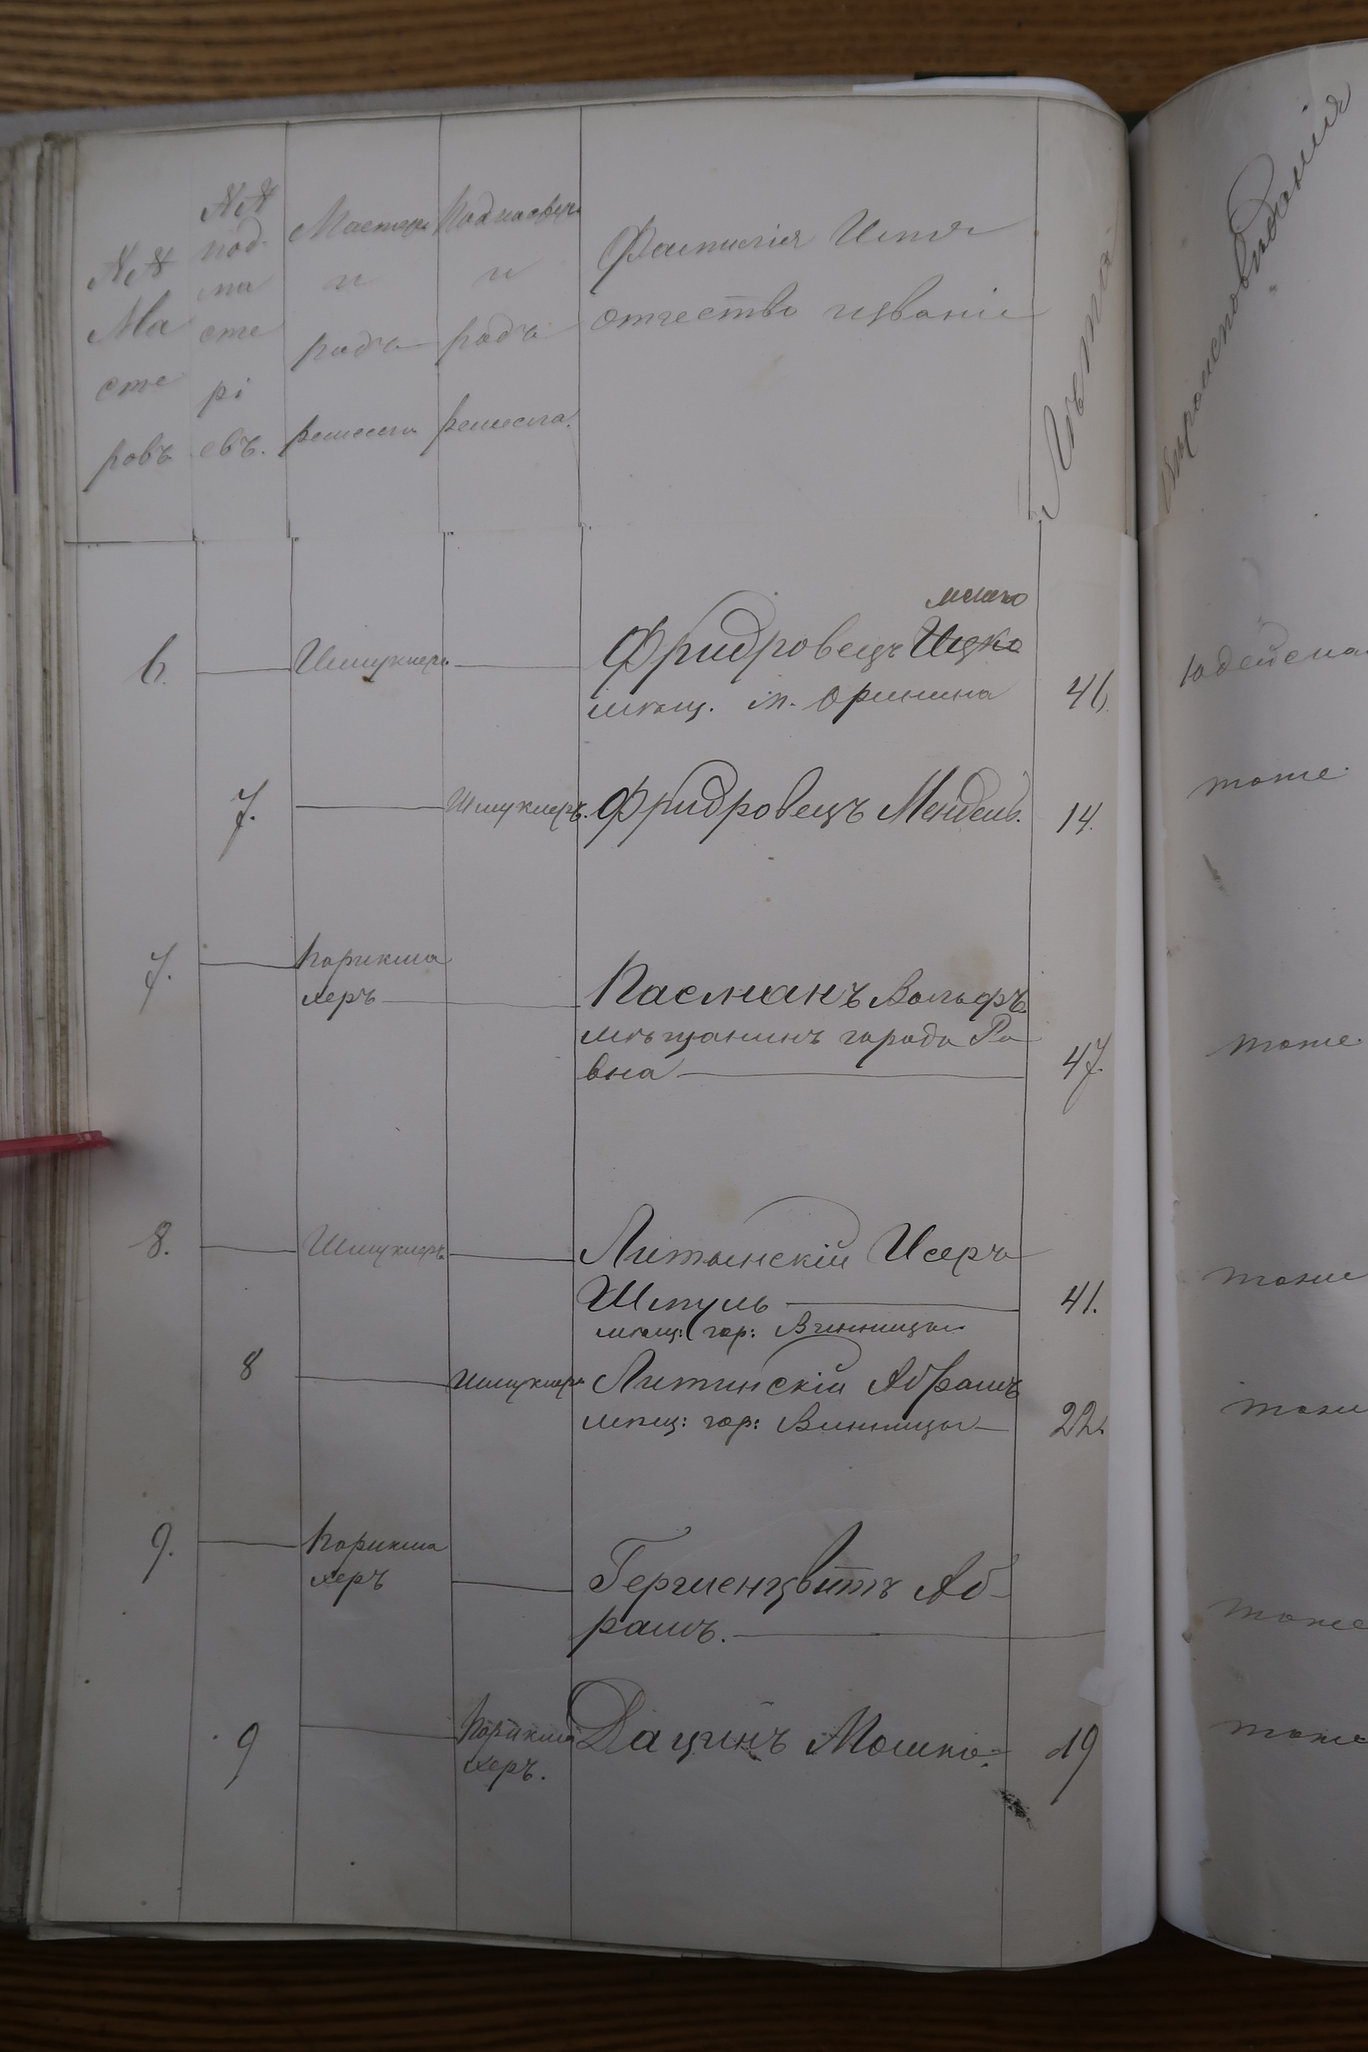 №№ Мастеровъ
№№ подмастерiевъ.
Мастера и рода ремесла
Подмастерья и рода ремесла.
Фамилiя Имя
отчество и званiе
Лета
Вѣроисповѣданiя
мошко
6. Шмуклеръ Фридровецъ Ицко
мѣщ. м. Оринина 46. Iюдейска
7. Шмуклеръ. Фридровецъ Мендель. 14. тоже.
7. Парикма
херъ Пасманъ Вольфъ.
мѣщанинъ города Ро
вна 47. тоже
8. Шмуклеръ Литынскiй Исеръ
Шмуль 41. тоже
мѣщ: гор: Винницы
8 Шмуклеръ Литинскiй Абрамъ
мѣщ: гор: Винницы 22. тоже
9. Парикма
херъ Гершенцвитъ Аб-
рамъ. тоже
9 Парикма
херъ. Дацинъ Мошко. 19 тоже